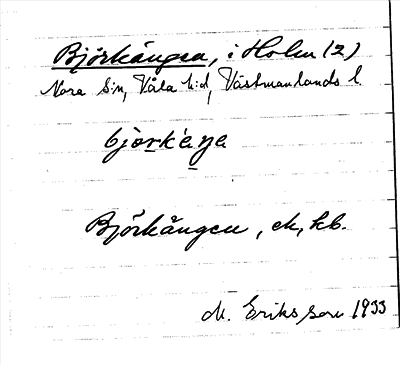 Björkängen, i Holm (2)
Nora s:n, Våla h:d, Västmanlands l.
bjơrkæŋa
Björkängen, ek, kb.
M. Eriksson 1933